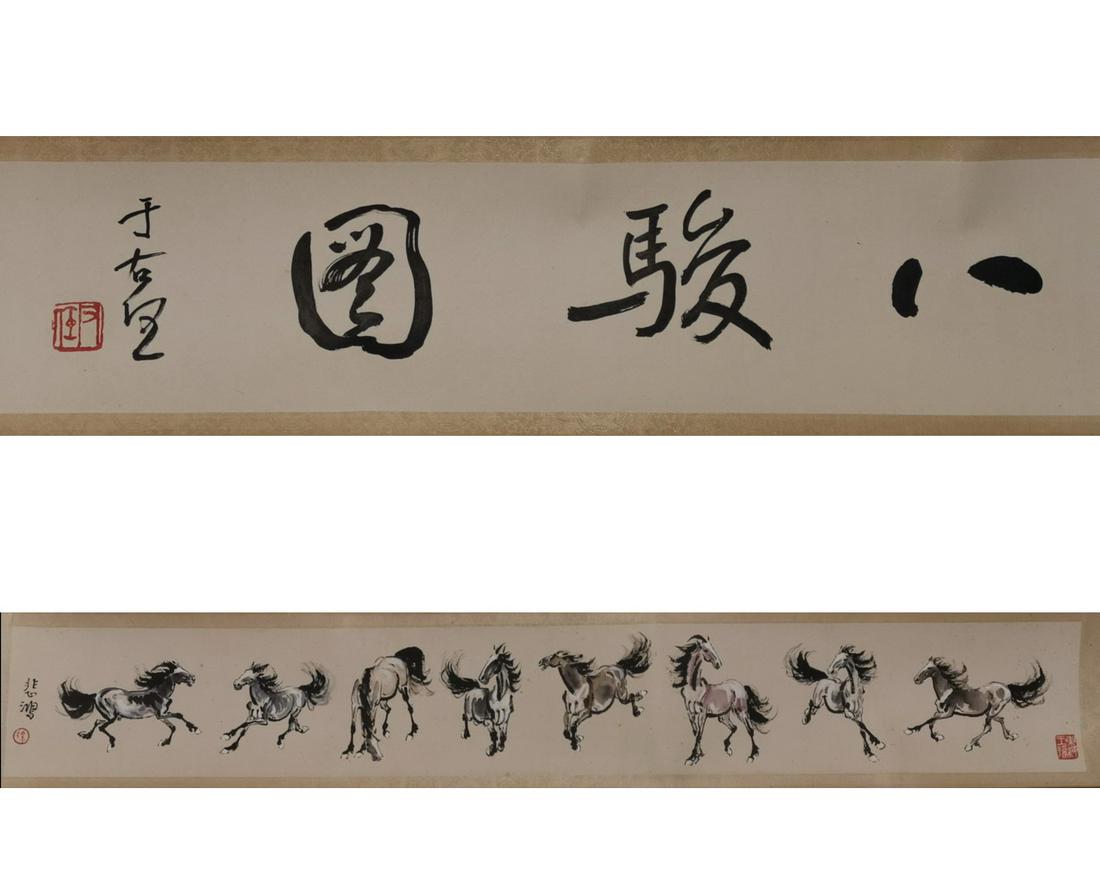 八駿圖
于右任
悲鴻